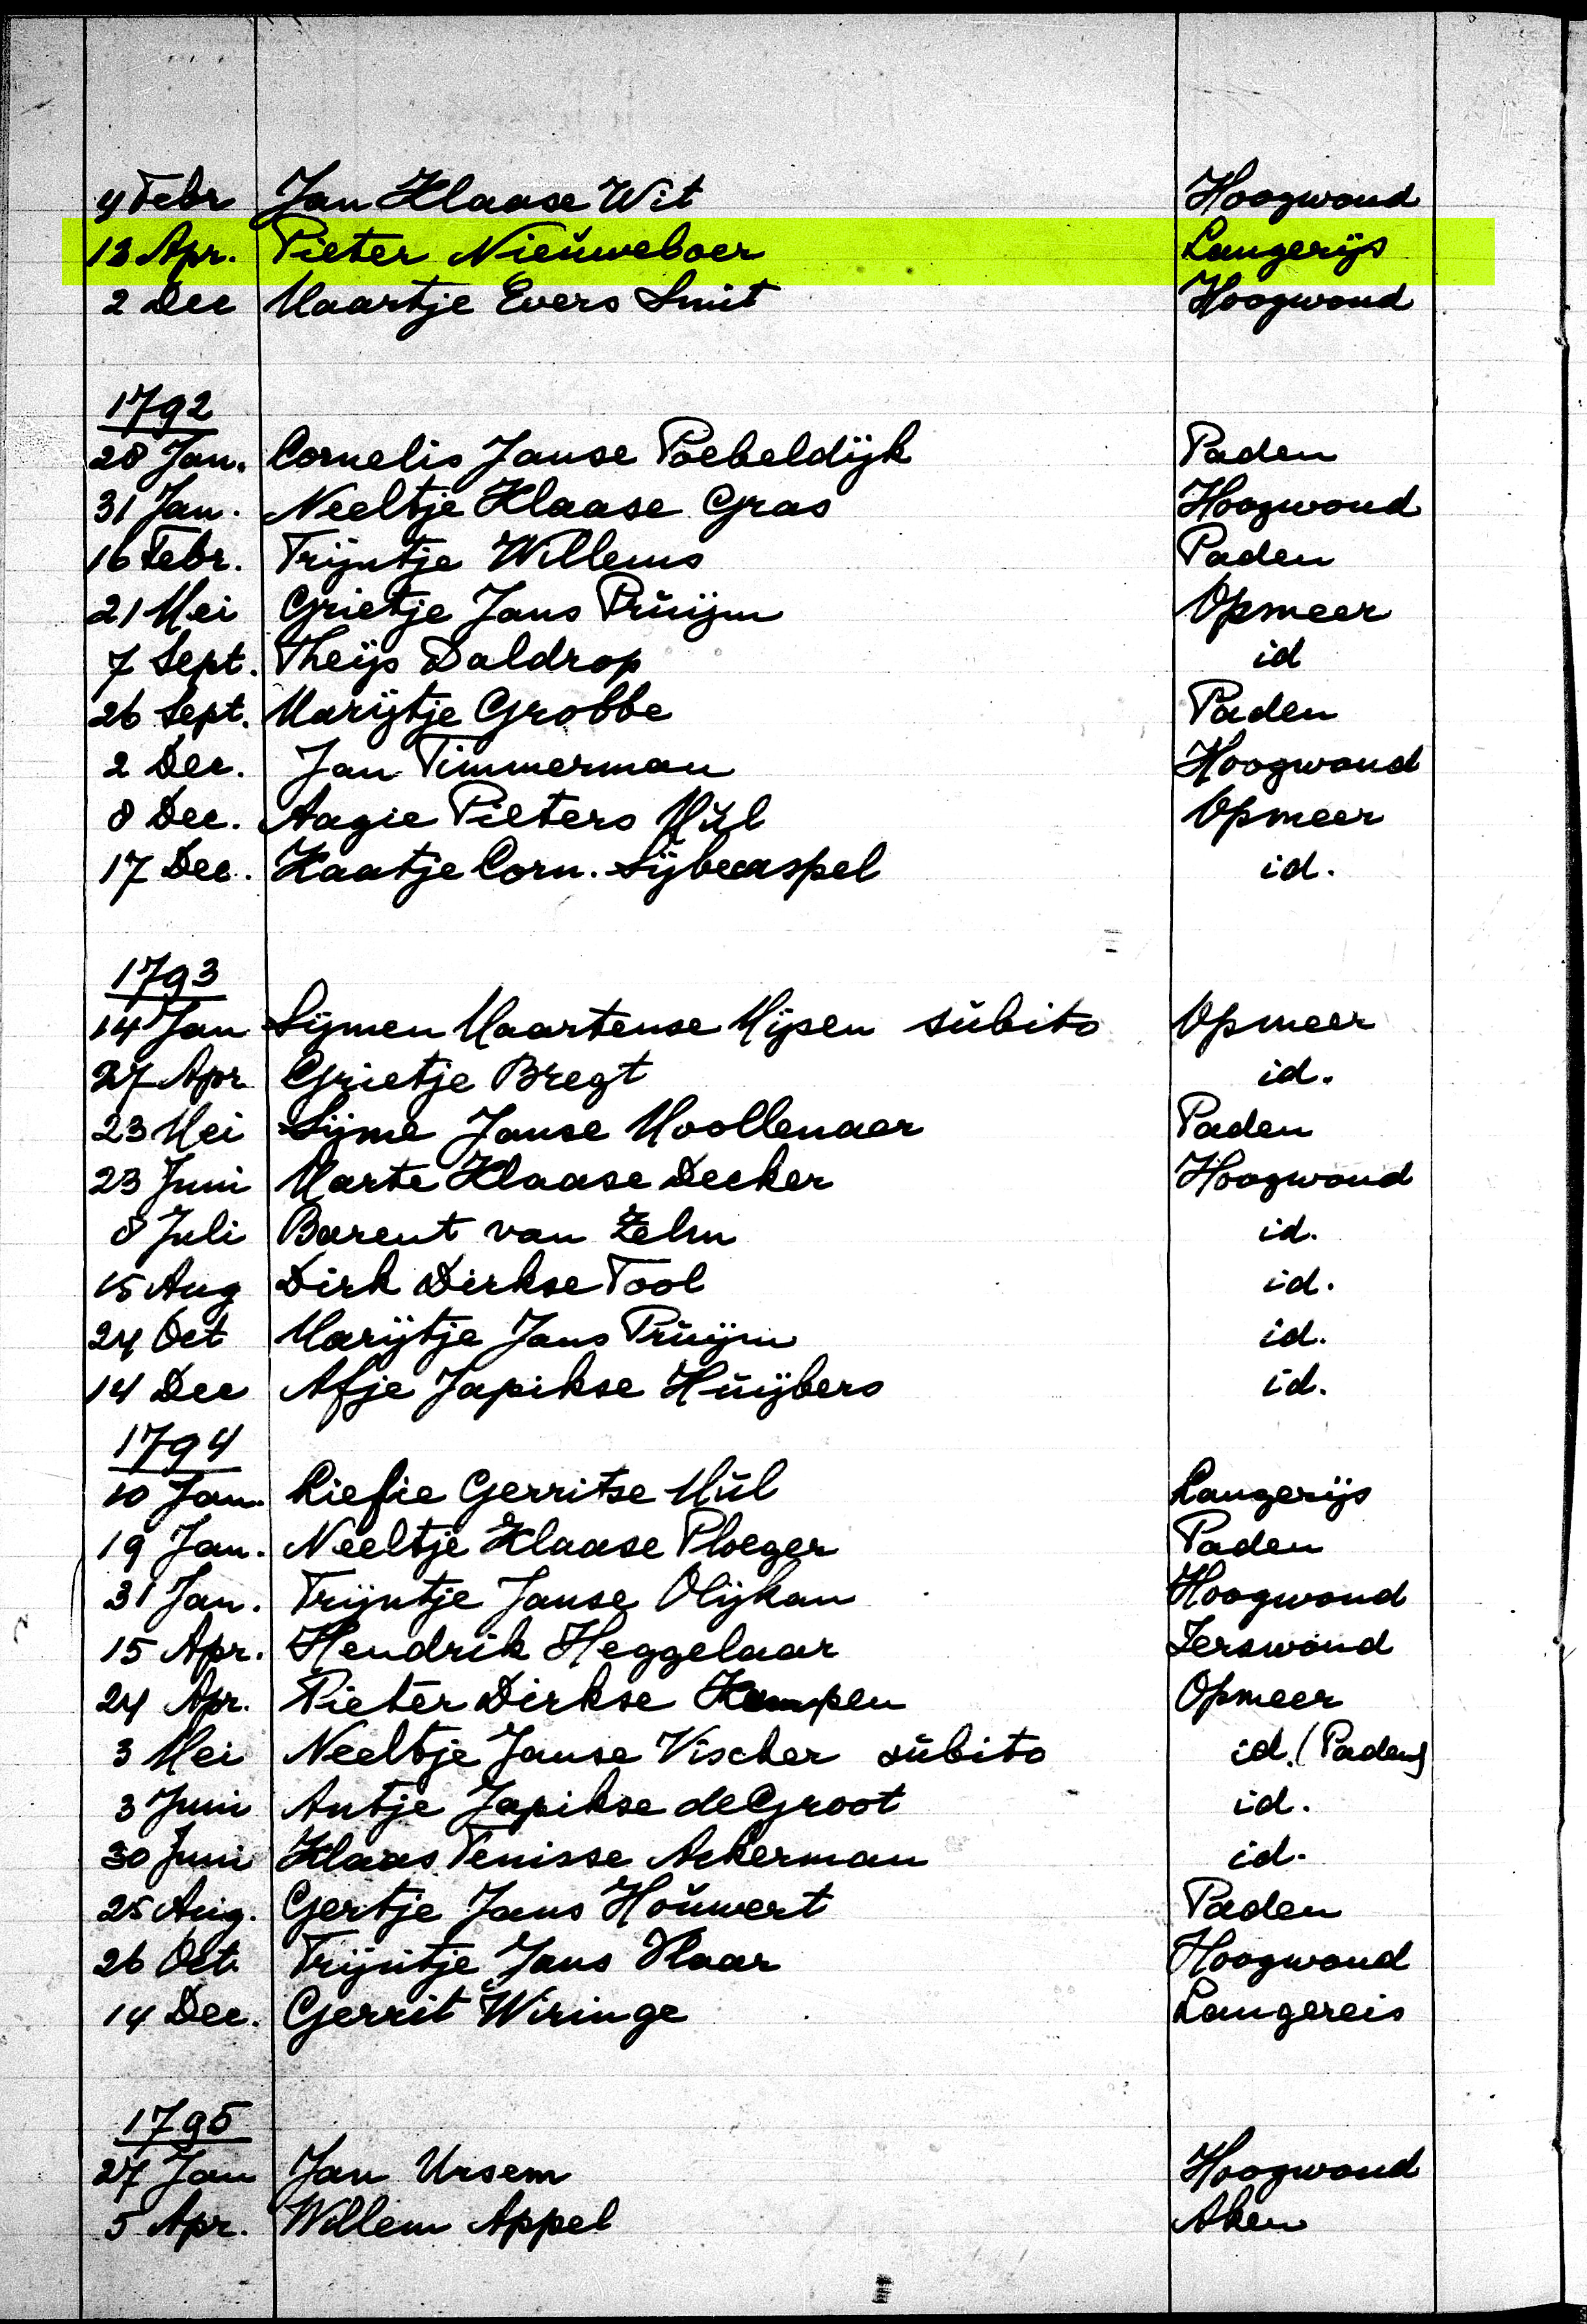 4 Febr Jan Klaase Wit Hoogwoud
13 Apr. Pieter Nieuweboer Langerijs
2 Dec Maartje Evers Smit Hoogwoud
1792
28 Jan. Cornelis Janse Poebeldijk Paden
31 Jan. Neeltje Klaase Gras Hoogwoud
16 Febr. Trijntje Willems Paden
21 Mei Grietje Jans Pruijm Opmeer
7 Sept. Theijs Daldrop id
26 Sept. Marijtje Grobbe Paden
2 Dec. Jan Timmerman Hoogwoud
8 Dec. Aagie Pieters Mul Opmeer
17 Dec. Kaatje Corn. Sijbecaspel id.
1793
14 Jan Sijmen Maartense Mijsen subito Opmeer
27 Apr Grietje Bregt id.
23 Mei Sijme Janse Moollenaer Paden
23 Juni Marte Klaase Decker Hoogwoud
8 Juli Barent van Zelm id.
15 Aug Dirk Dirkse Tool id.
24 Oct Marijtje Jans Pruijm id.
14 Dec Afje Japikse Huijbers id.
1794
10 Jan. Liefie Gerritse Mul Langerijs
19 Jan. Neeltje Klaase Ploeger Paden
31 Jan. Trijntje Janse Olijkan Hoogwoud
15 Apr. Hendrik Heggelaar Zerswoud
24 Apr. Pieter Dirkse Kempen Opmeer
3 Mei Neeltje Janse Vischer subito id. (Paden)
3 Juni Antje Japikse de Groot id.
30 Juni Klaas Tenisse Ackerman id.
25 Aug. Gertje Jans Houwert Paden
26 Oct. Trijntje Jans Vlaar Hoogwoud
14 Dec. Gerrit Wiringe Langereis
1795
27 Jan Jan Ursem Hoogwoud
5 Apr. Willem Appel Aken